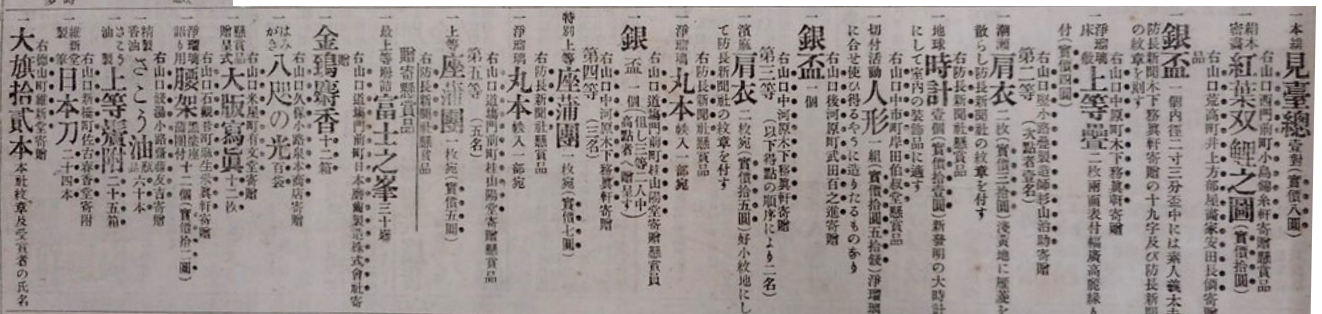 一本讀見臺總壹對(實價八圓)
右山口西門前町小島錦糸軒寄贈懸賞品
一絹本密畵紅葉双鯉之圖(實價拾圓)
右山口荒高町井上方部屋畵家安田長僯寄贈品
一銀盃 一個内徑二寸三分盃中には素人義太夫
防長新聞木下務眞軒寄贈の十九字及び防長新聞
の紋章を刻す
右山口中原町木下務眞軒寄贈
一淨瑠璃床 上等疊 二枚兩面表付幅廣高麗緣
付(實價四圓)
右山口堅小路疊製造師杉山治助寄贈
第二等 (次點者壹名)
肩衣 二枚宛 淺黃地に雁菱を
散らし防長新聞社の紋章を付す
右防長新聞社懸賞品
一地球時計 壹個(實價拾壹圓)新發明の大時計
にして室内の装飾品に適す
右山口中市町岸田伯叔堂懸賞品
一切付活動人形 一組(實價拾圓五拾錢)淨瑠璃
に合せ使ひ得るやうに造りたるものなり
右山口後河原町武田百之進寄贈
一銀盃 一個
右山口中河原木下務眞軒寄贈
第三等 (以下得點の順序により二名)
一濱麻肩衣 二枚宛(實價拾五圓)好小紋地にし
て防長新聞社の紋章を付す
右防長新聞社懸賞品
一淨瑠璃丸本 帙入一部宛
右山口道場門前町桂山陽堂寄贈懸賞品
一銀盃 一個(但し三等二人中高點者へ贈呈す)
右山口中河原木下務眞軒寄贈
第四等 (三名)
一特別上等座蒲團 一枚宛(實價七圓)
右防長新聞社懸賞品
一淨瑠璃丸本 帙入一部宛
右山口道場門前町桂山陽堂寄贈懸賞品
第五等 (五名)
一上等座蒲團 一枚宛(實價五圓)
右防長新聞社懸賞品
贈寄懸賞品
一最上等富士之峯 三十
右山口道場門前町日本磨齒製造株式會社寄贈
一金鵄麝香 十二箱
右山口久保小路泉本商店寄贈
一はみがき八咫の光 百袋
右山口米屋町有文堂寄贈
一懸賞品贈呈式大版寫眞 十二枚
右山口石觀音町
一淨瑠璃語り用腰架 蒲團付 十二個(實價拾二圓)
右山口諸願小路齋藤友吉寄贈
一精製香油さこう油 六十本
一さこう油製上等鬢附 二十五箱
右山口新橋町佐古春香堂寄附
一維新堂製日本刀 二十四本
右德山町維新堂寄贈
一大旗拾貳本 本社紋章及受賞者の氏名